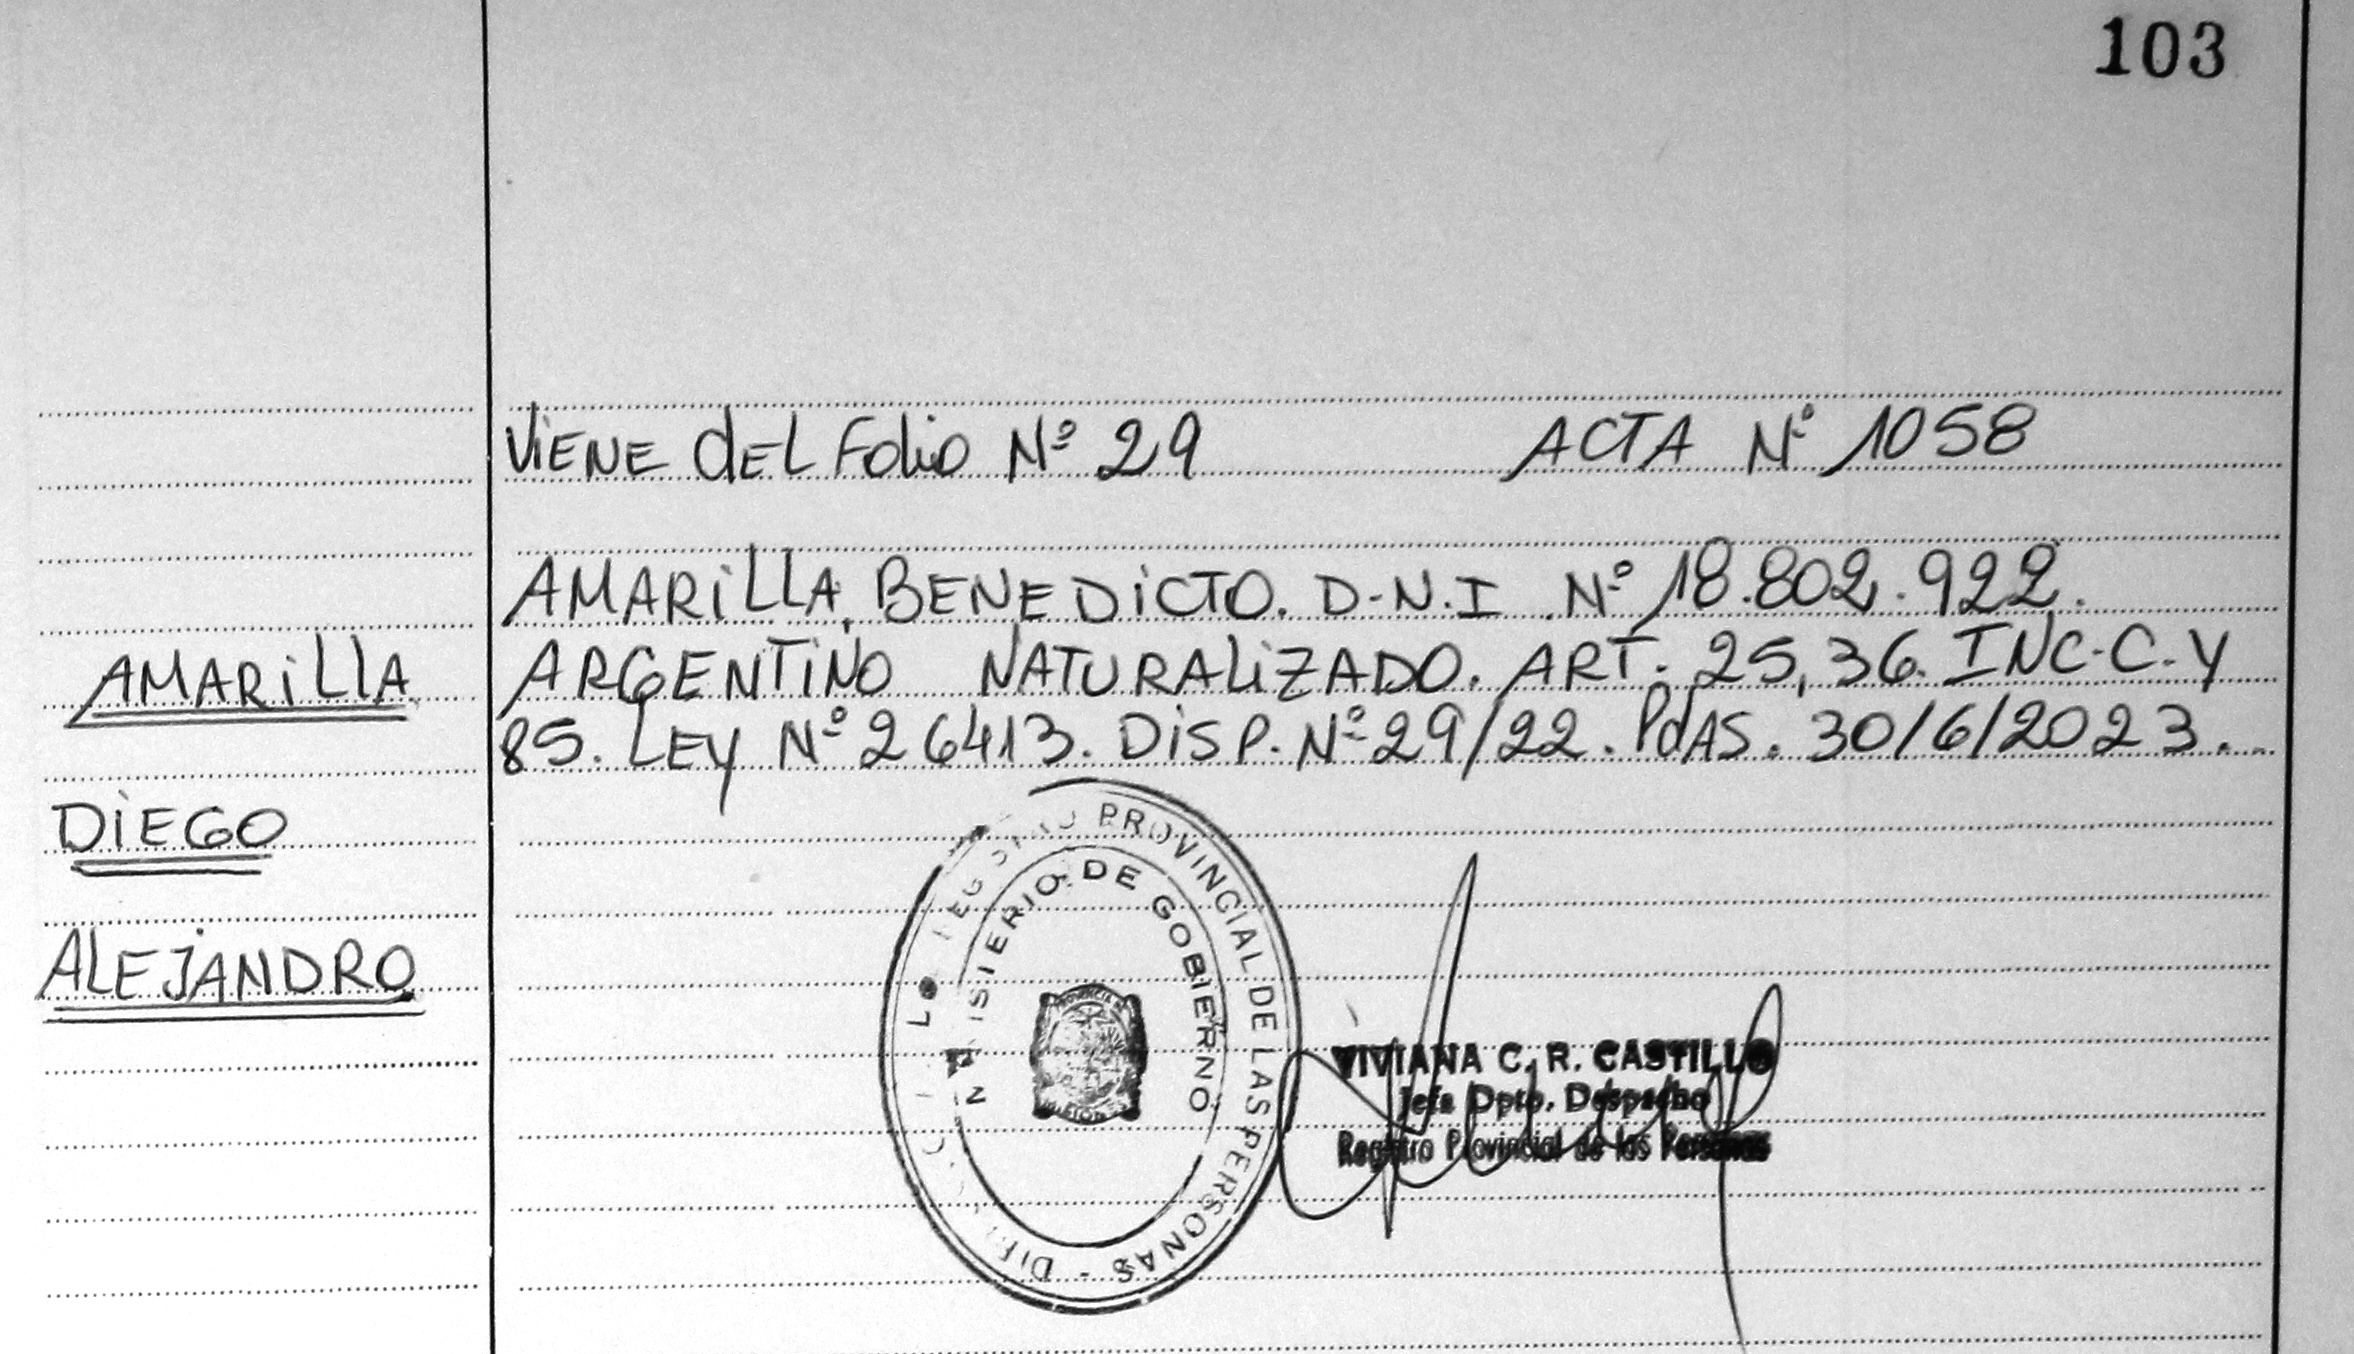 103
ViENE dEL Folio Nº 29 ACTA Nº 1058
AMARiLLA, BENEDiCTO. D-N.I Nº 18.802.922.
AMARiLLA
ARGENTiNO NATURALiZADO. ART. 25,36. INC-C. Y
85. LEY Nº 26413. DiSP. Nº 29/22. PdAS. 30/6/2023.
DiEGO
ALEJANDRO
PROVINCIAL DE LAS PERSONAS -
DE GOBIERNO
VIVIANA C. R. CASTILLO
Jefa Dpto. Despacho
Registro Provincial de las Personas